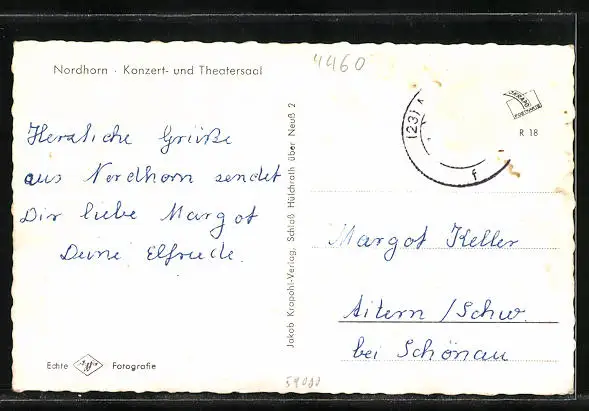 Nordhorn · Konzert- und Theatersaal
4460
Herzliche Grüße
aus Nordhorn sendet
Dir liebe Margot
Deine Elfriede.
Echte Agfa Fotografie
Jakob Krapohl-Verlag, Schloß Hülchrath über Neuß 2
(23)
f
POSTKARTE
R 18
Margot Keller
Aitern / Schw.
bei Schönau